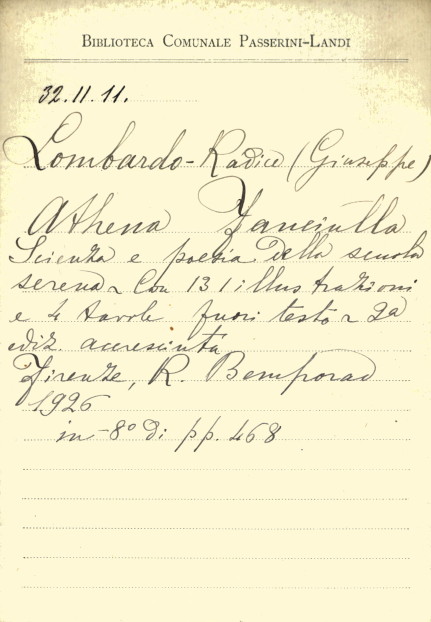 BIBLIOTECA COMUNALE PASSERINI-LANDI
32.II.11.
Lombardo-Radice (Giuseppe)
Athena Fanciulla
Scienza e poesia della scuola
serena ~ Con 131 illustrazioni
e 4 tavole fuori testo ~ 2a
ediz. accresciuta
Firenze, R. Bemporad
1926
in-8° di pp. 468